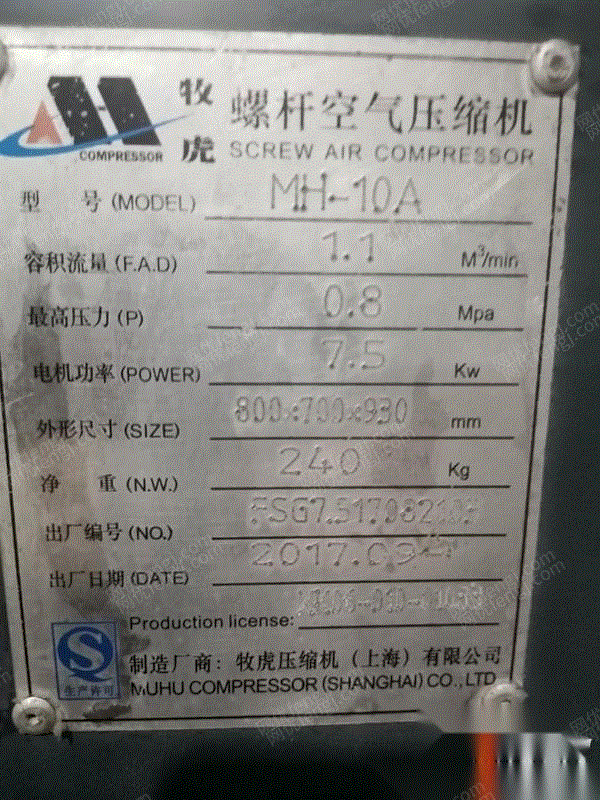 牧虎 螺杆空气压缩机
COMPRESSOR SCREW AIR COMPRESSOR
型 号 (MODEL) MH-10A
容积流量 (F.A.D) 1.1 M³/min
最高压力 (P) 0.8 Mpa
电机功率 (POWER) 7.5 Kw
外形尺寸 (SIZE) 800×700×930 mm
净 重 (N.W.) 240 Kg
出厂编号 (NO.)
出厂日期 (DATE) 2017.09
Production license:
生产许可
制造厂商：牧虎压缩机（上海）有限公司
MUHU COMPRESSOR (SHANGHAI) CO.,LTD